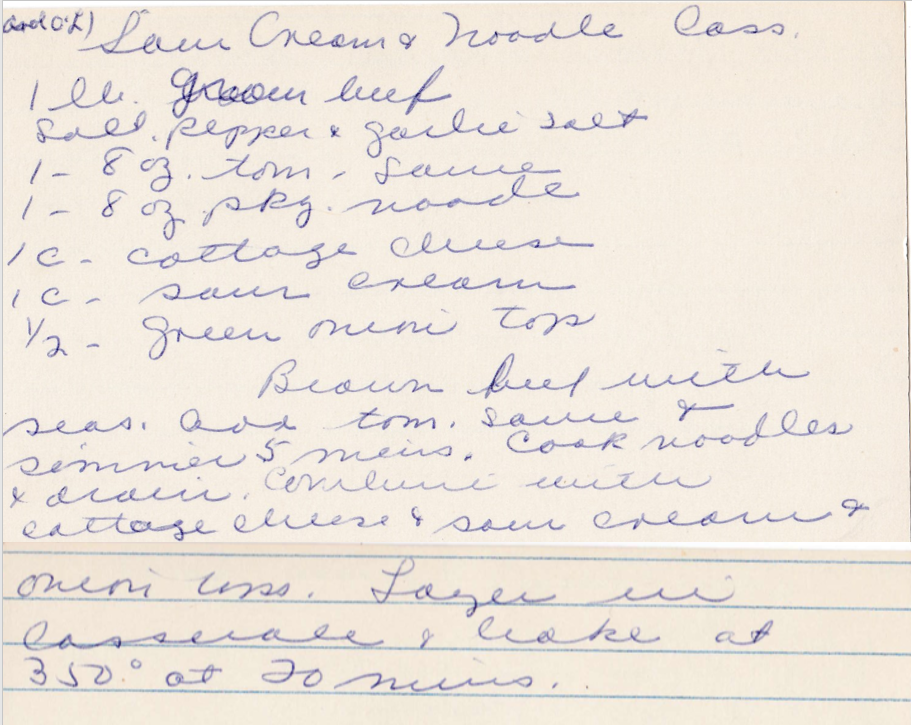 and O.K)
Sour Cream & Noodle Cass.
1 lb. groun beef
Salt. Pepper & garlic salt
1 - 8 oz. tom. Sauce
1 - 8 oz pkg. noode
1 c - cottage cheese
1 c - sour cream
1/2 - green onion top
Brown beef with
seas. add tom. sauce &
simmer 5 mins. Cook noodles
& drain. Combine with
cottage cheese & sour cream &
onion tops. Layer in
Casserole & bake at
350° at 20 mins.